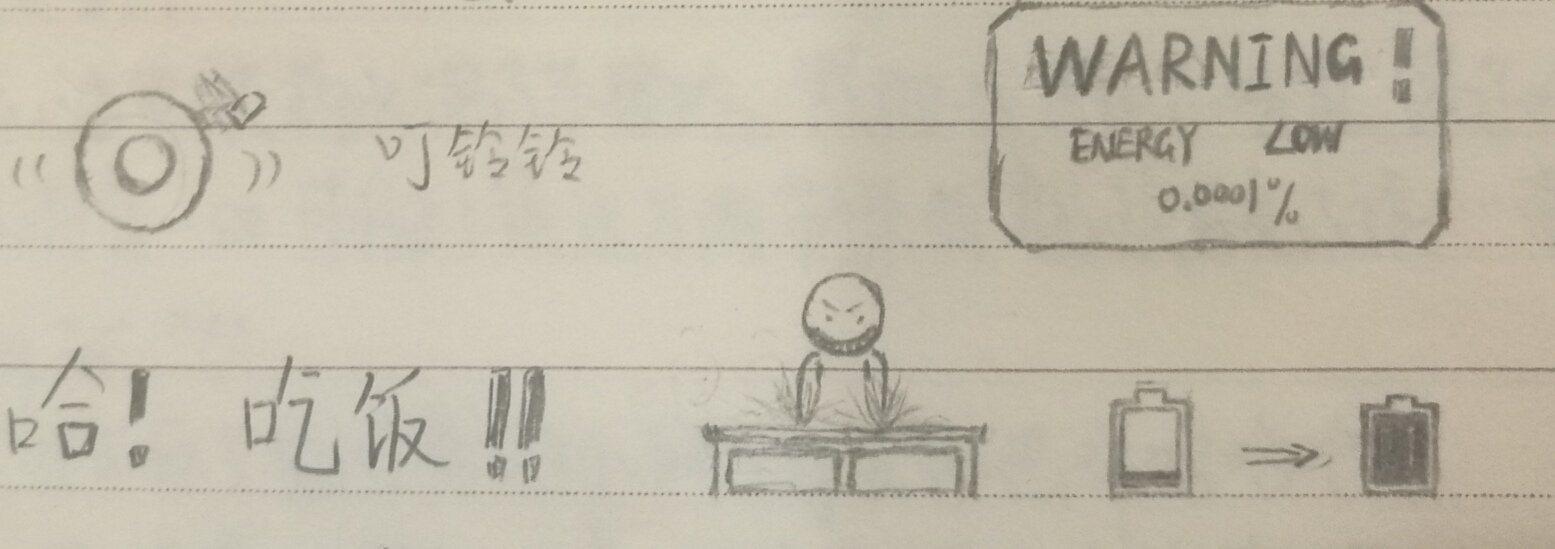 叮铃铃
WARNING!
ENERGY LOW
0.0001%
哈! 吃饭!!